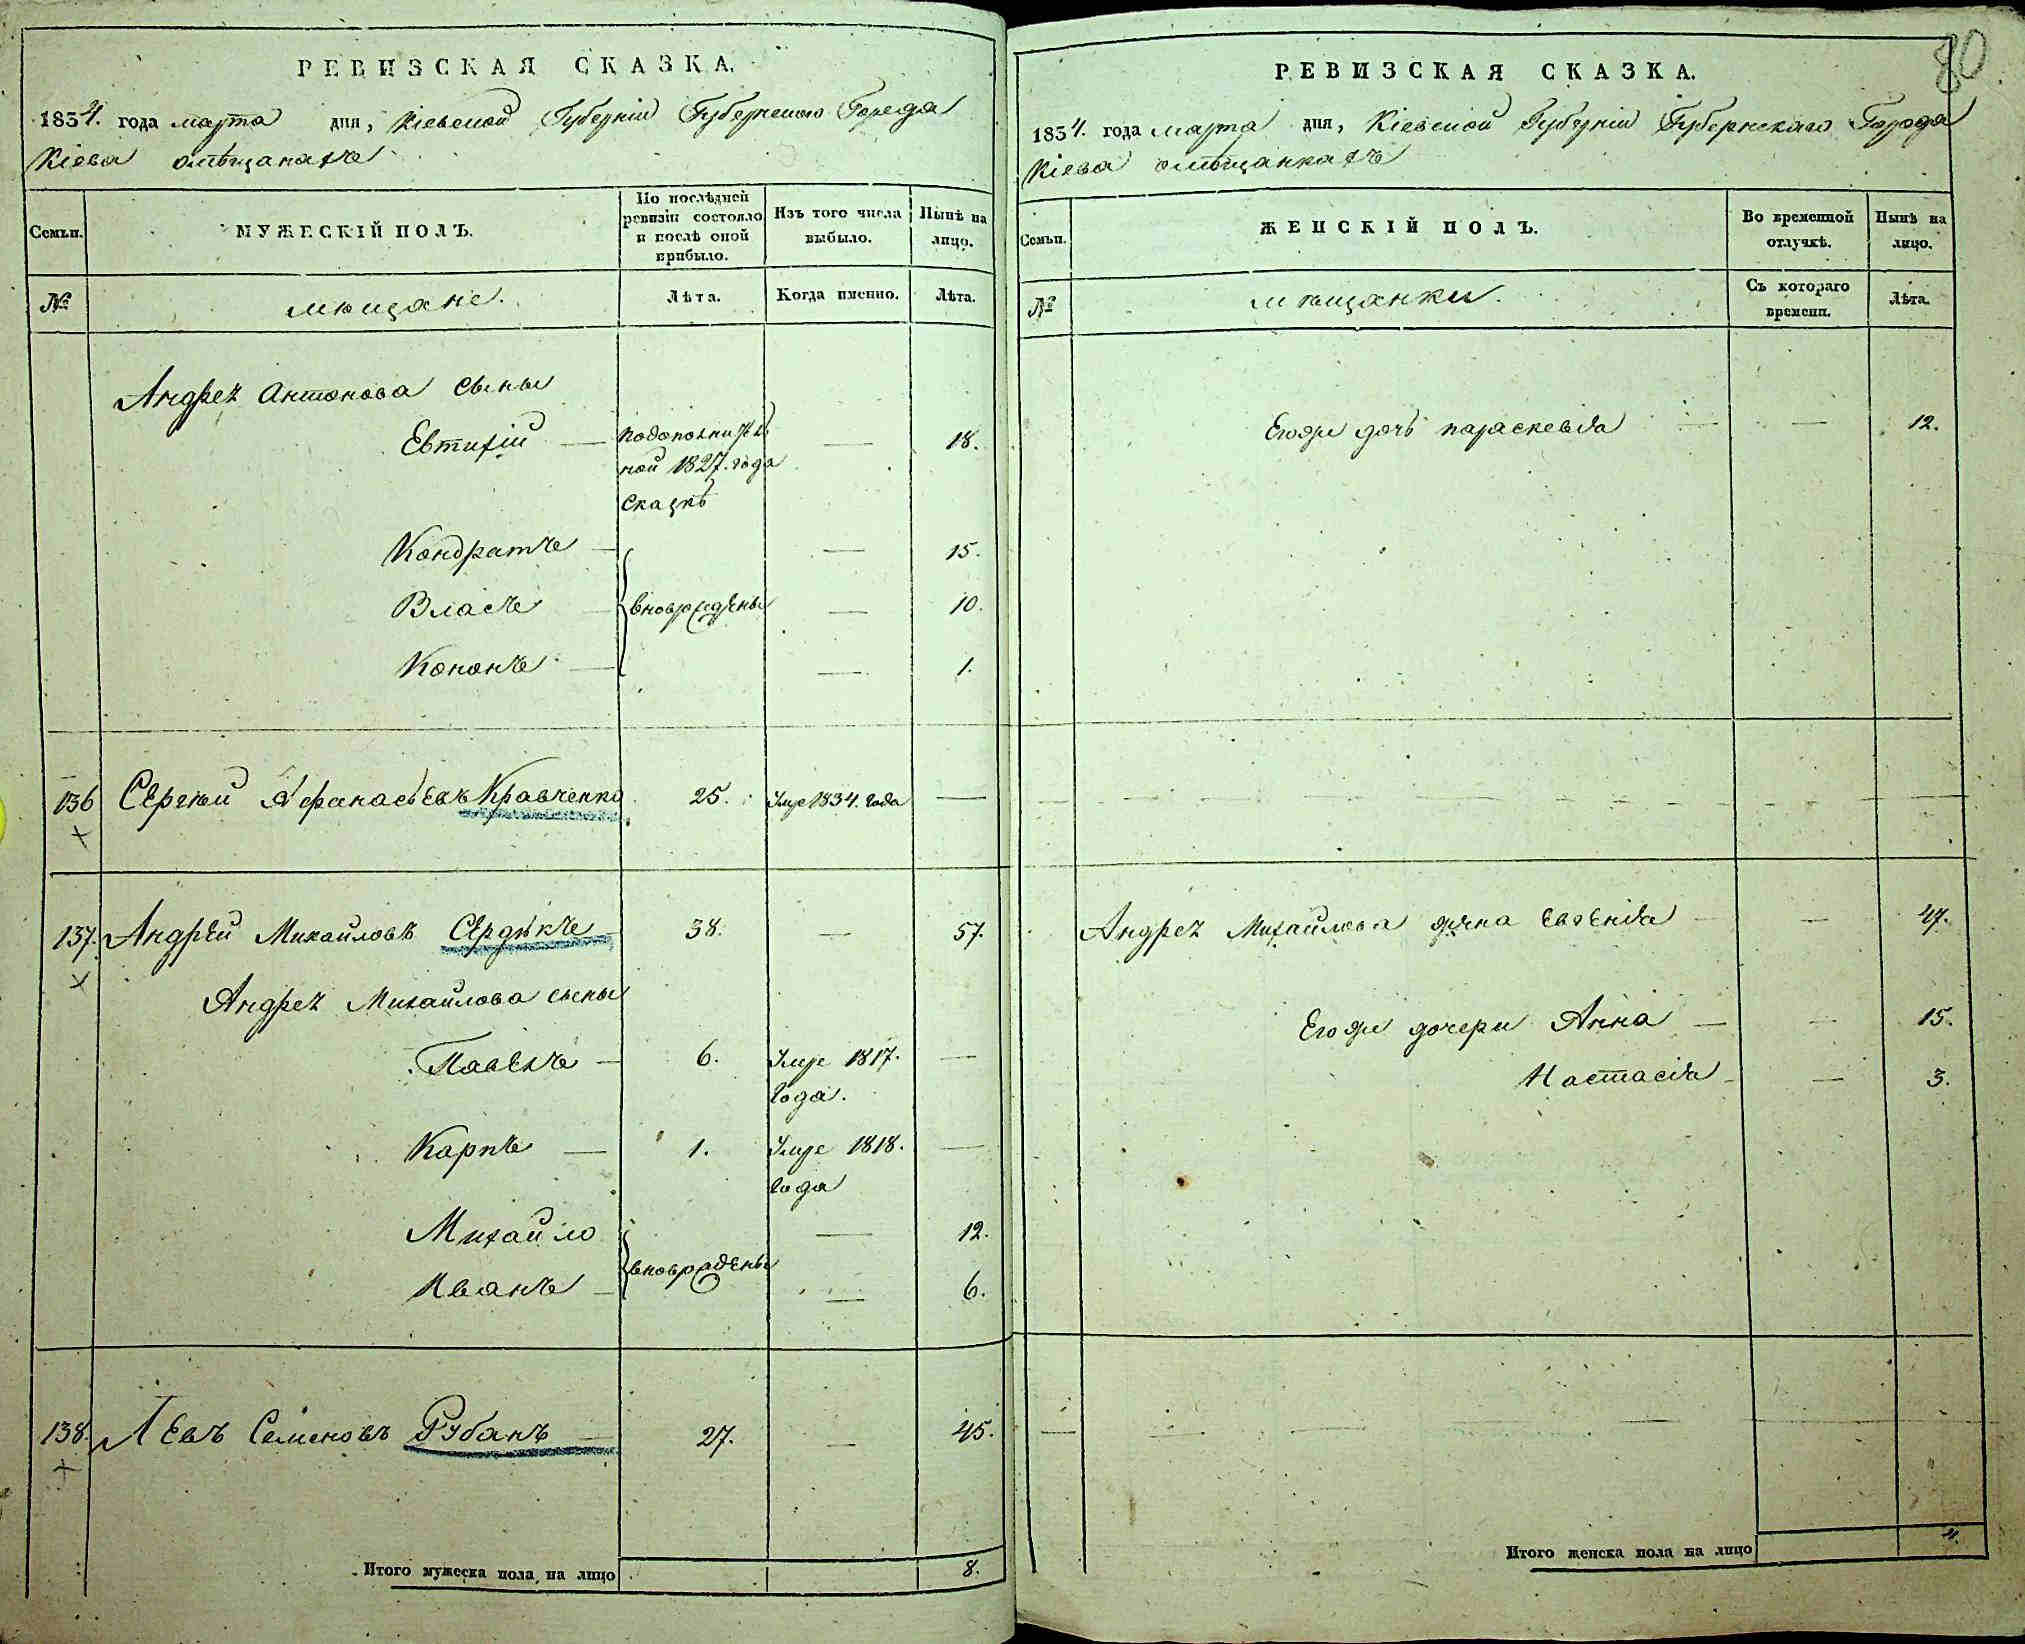 РЕВИЗСКАЯ СКАЗКА.
1834. года марта дня, Кіевской Губерніи Губернскаго Города
Кіева омѣщанахъ
Семьи.
МУЖЕСКІЙ ПОЛЪ.
По послѣдней
ревизіи состояло
и послѣ оной
прибыло.
Изъ того числа
выбыло.
Нынѣ на
лицо.
№
мѣщане.
Лѣта.
Когда именно.
Лѣта.
Андрея Антонова сыны
Евтихій — подополнитель — 18.
ной 1827. года
сказкѣ
Кондратъ — — 15.
Власъ — вновьрождены — 10.
Кононъ — — 1.
136 Сергѣй Афанасьевъ Кравченко 25. Умре 1834. года —
137. Андрѣй Михайловъ Сердюкъ 38. — 57.
Андрея Михайлова сыны
Павелъ — 6. Умре 1817. —
года.
Карпъ — 1. Умре 1818. —
года
Михайло — 12.
вновьрождены
Иванъ — — 6.
138. Левъ Семеновъ Рубанъ — 27. — 45.
Итого мужеска пола на лицо 8.
80
РЕВИЗСКАЯ СКАЗКА.
1834. года марта дня, Кіевской Губерніи Губернскаго Города
Кіева омѣщанкахъ
Семьи.
ЖЕНСКІЙ ПОЛЪ.
Во временной
отлучкѣ.
Нынѣ на
лицо.
№
мѣщанки.
Съ котораго
времени.
Лѣта.
Егоже дочь Параскевія — — 12.
Андрея Михайлова жена Евгенія — — 47.
Егоже дочери Анна — — 15.
Настасія — — 3.
Итого женска пола на лицо 4.